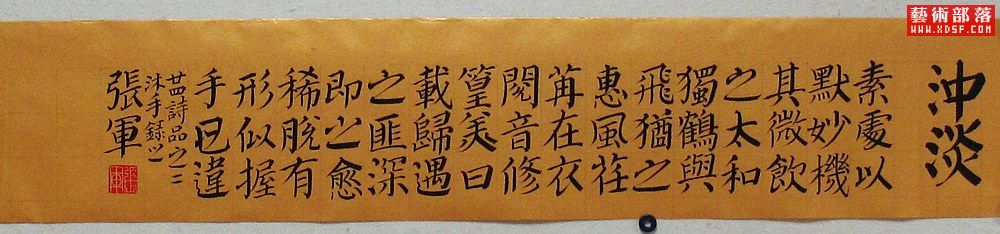 藝術部落
WWW.XDSF.COM
沖淡
素處以
默妙機
其微飲
之太和
獨鶴與
飛猶之
惠風荏
苒在衣
閱音修
篁美曰
載歸遇
之匪深
即之愈
稀脫有
形似握
手已違
廿四詩品之二
沐手錄之
張軍